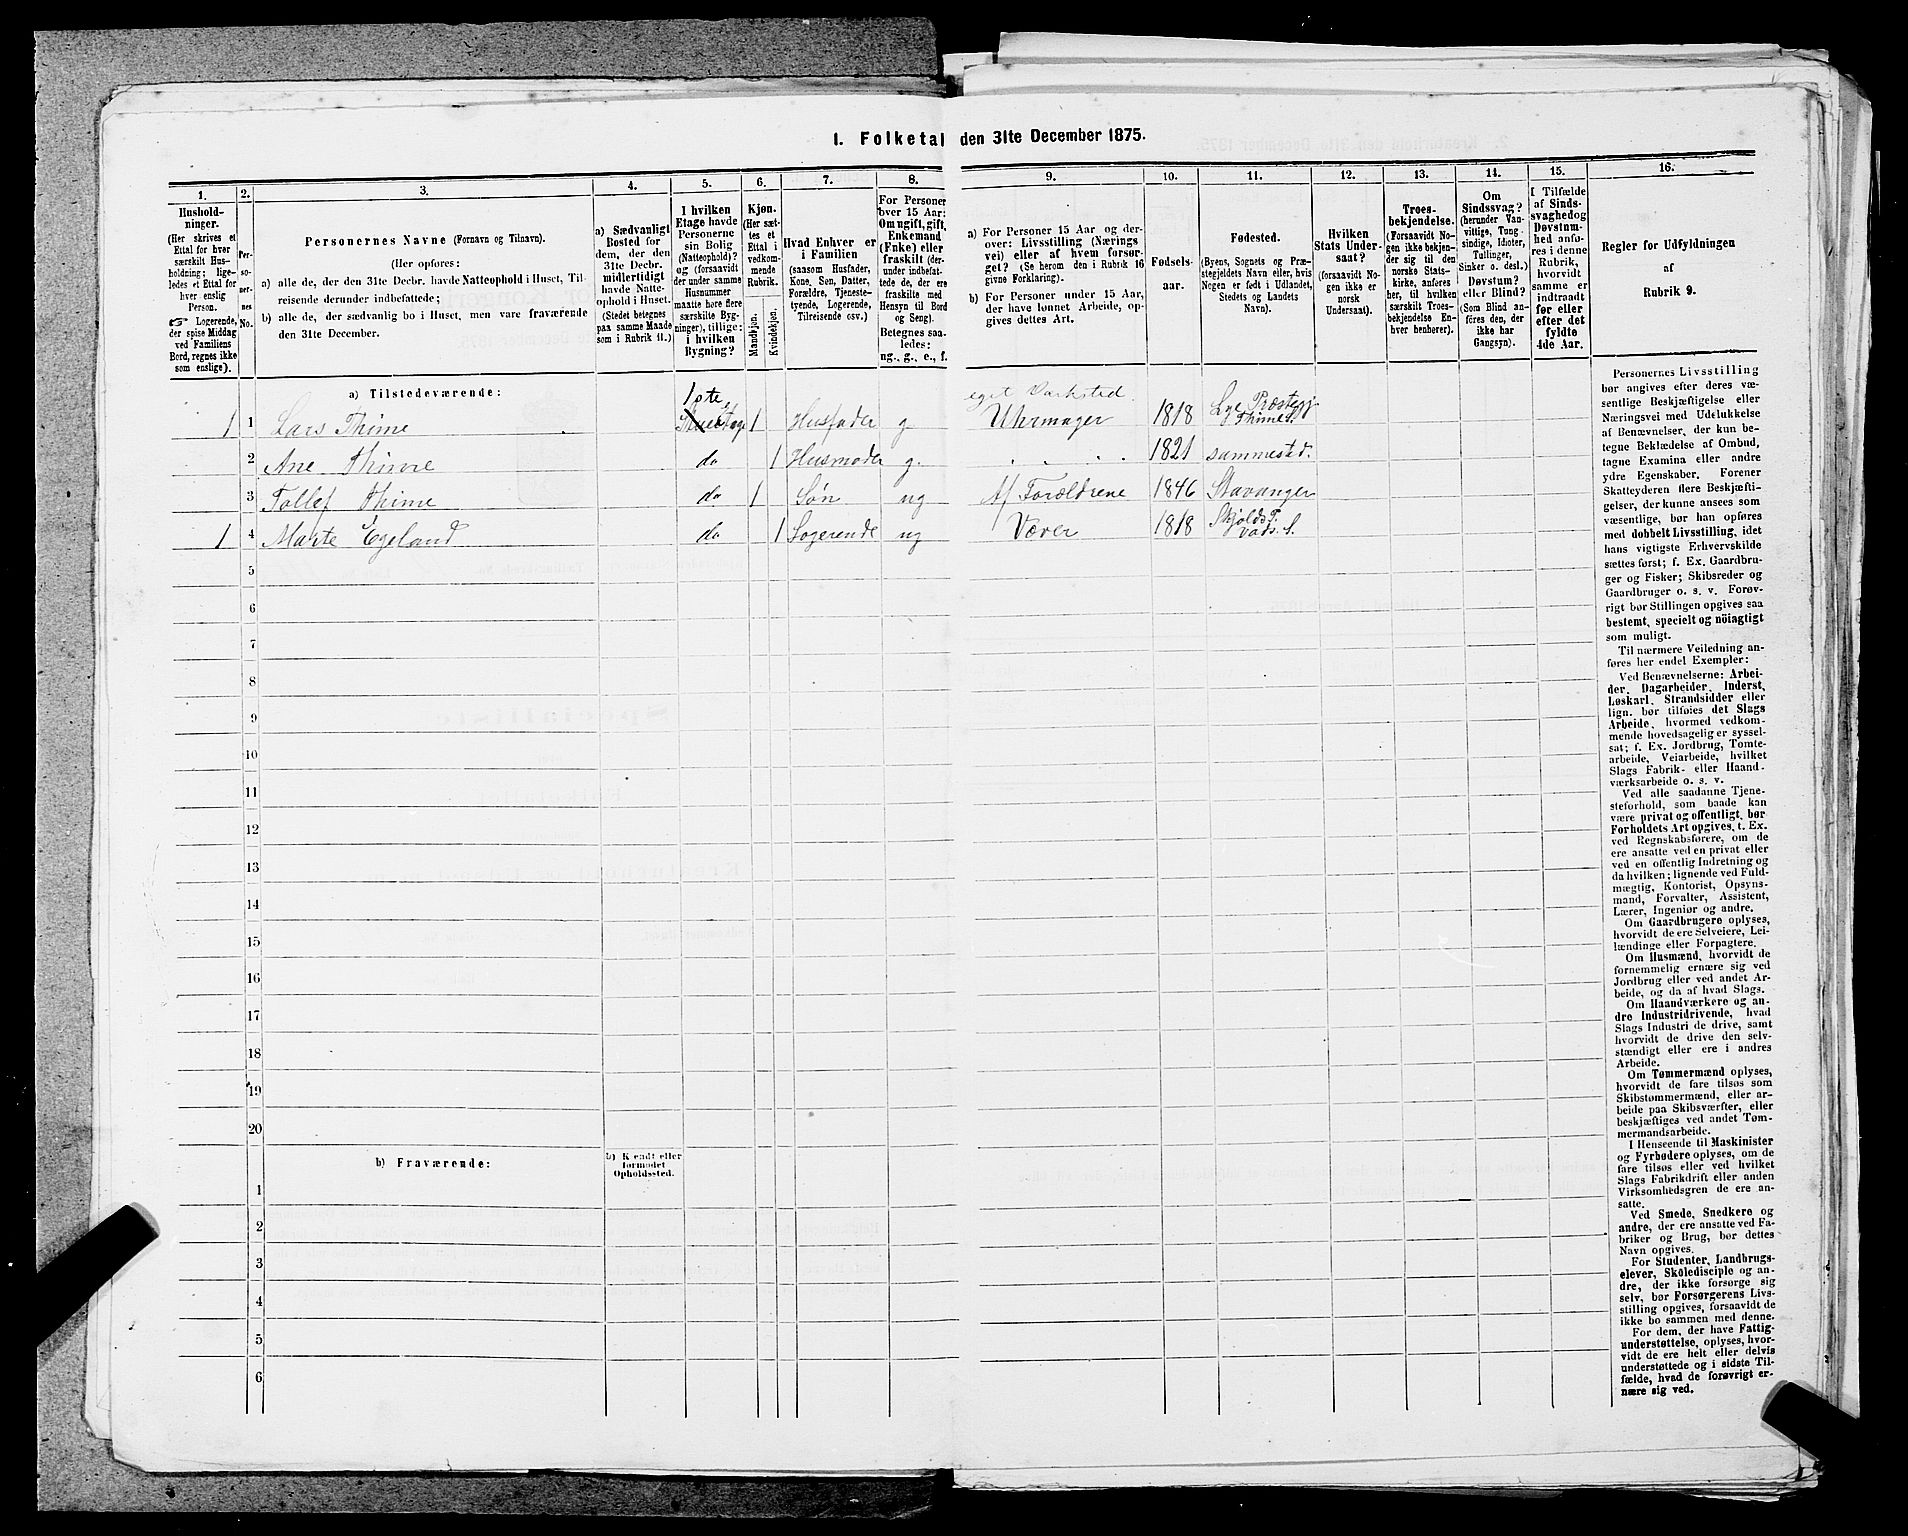 1. Folketal den 31te December 1875.
1. 2. 3. 4. 5. 6. 7. 8. 9. 10. 11. 12. 13. 14. 15. 16.
Hushold-
ninger.
(Her skrives et
Ettal for hver
særskilt Hus-
holdning; lige-
ledes et Ettal for
hver enslig
Person.
☞ Logerende,
der spise Middag
ved Familiens
Bord, regnes ikke
som enslige).
Per-
so-
ner-
nes
No.
Personernes Navne (Fornavn og Tilnavn).
(Her opføres:
a) alle de, der den 31te Decbr. havde Natteophold i Huset, Til-
reisende derunder indbefattede;
b) alle de, der sædvanlig bo i Huset, men vare fraværende
den 31te December.
a) Sædvanligt
Bosted for
dem, der den
31te Decbr.
midlertidigt
havde Natte-
ophold i Huset.
(Stedet betegnes
paa samme Maade
som i Rubrik 11.)
I hvilken
Etage havde
Personerne
sin Bolig
(Natteophold)?
og (forsaavidt
der under samme
Husnummer
maatte høre flere
særskilte Byg-
ninger), tillige:
i hvilken
Bygning?
Kjøn.
(Her sæt-
tes et
Ettal i
vedkom-
mende
Rubrik.
Mandkjøn.
Kvindekjøn.
Hvad Enhver er
i Familien
(saasom Husfader,
Kone, Søn, Datter,
Forældre, Tjeneste-
tyende, Logerende,
Tilreisende osv.)
For Personer
over 15 Aar:
Om ugift, gift,
Enkemand
(Enke) eller
fraskilt (der-
under indbefat-
tede de, der ere
fraskilte med
Hensyn til Bord
og Seng).
Betegnes saa-
ledes:
ug., g., e., f.
a) For Personer 15 Aar og der-
over: Livsstilling (Nærings
vei) eller af hvem forsør-
get? (Se herom den i Rubrik 16
givne Forklaring).
b) For Personer under 15 Aar,
der have lønnet Arbeide, op-
gives dettes Art.
Fødsels-
aar.
Fødested.
(Byens, Sognets og Præ-
stegjeldets Navn eller, hvis
Nogen er født i Udlandet,
Stedets og Landets
Navn).
Hvilken
Stats Under-
saat?
(forsaavidt No-
gen ikke er
norsk
Undersaat).
Troes-
bekjendelse.
(Forsaavidt No-
gen ikke bekjen-
der sig til den
norske Stats-
kirke, anføres
her, til hvilken
særskilt Troes-
bekjendelse En-
hver henhører).
Om
Sindssvag?
(herunder Van-
vittige, Tung-
sindige, Idioter,
Tullinger,
Sinker o. desl.)
Døvstum?
eller Blind?
(Som Blind an-
føres den, der
ikke har
Gangsyn).
I Tilfælde
af Sinds-
svaghed og
Døvstum-
hed anfø-
res i denne
Rubrik,
hvorvidt
samme er
indtraadt
før eller
efter det
fyldte
4de Aar.
Regler for Udfyldningen
af
Rubrik 9.
a) Tilstedeværende:
1 1 Lars Thime 1ste Etage 1 Husfader g. eget Værksted. Uhrmager 1818 Lye Præstegj. Thime S.
2 Ane Thime do 1 Husmoder g. . . . . 1821 sammested.
3 Tollef Thime do 1 Søn ug Af Forældrene 1846 Stavanger
1 4 Marte Egeland do 1 Logerende ug Væver 1818 Skjolds P. Vads. S.
5
6
7
8
9
10
11
12
13
14
15
16
17
18
19
20
b) Fraværende:
b) Kjendt eller
formodet
Opholdssted.
1
2
3
4
5
6
Personernes Livsstilling
bør angives efter deres væ-
sentlige Beskjæftigelse eller
Næringsvei med Udelukkelse
af Benævnelser, der kun be-
tegne Beklædelse af Ombud,
tagne Examina eller andre
ydre Egenskaber. Forener
Skatteyderen flere Beskjæfti-
gelser, der kunne ansees som
væsentlige, bør han opføres
med dobbelt Livsstilling, idet
hans vigtigste Erhvervskilde
sættes først; f. Ex. Gaardbru-
ger og Fisker; Skibsreder og
Gaardbruger o. s. v. Forøv-
rigt bør Stillingen opgives saa
bestemt, specielt og nöiagtigt
som muligt.
Til nærmere Veiledning an-
føres her endel Exempler:
Ved Benævnelserne: Arbei-
der, Dagarbeider, Inderst,
Løskarl, Strandsidder eller
lign. bør tilføies det Slags
Arbeide, hvormed vedkom-
mende hovedsagelig er syssel-
sat; f. Ex. Jordbrug, Tomte-
arbeide, Veiarbeide, hvilket
Slags Fabrik- eller Haand-
værksarbeide o. s. v.
Ved alle saadanne Tjene-
steforhold, som baade kan
være privat og offentligt, bør
Forholdets Art opgives, t. Ex.
ved Regnskabsførere, om de
ere ansatte ved en privat eller
ved en offentlig Indretning og
da hvilken; lignende ved Fuld-
mægtig, Kontorist, Opsyns-
mand, Forvalter, Assistent,
Lærer, Ingeniør og andre.
Om Gaardbrugere oplyses,
hvorvidt de ere Selveiere, Lei-
lændinge eller Forpagtere.
Om Husmænd, hvorvidt de
fornemmelig ernære sig ved
Jordbrug eller ved andet Ar-
beide, og da af hvad Slags.
Om Haandværkere og an-
dre Industridrivende, hvad
Slags Industri de drive, samt
hvorvidt de drive den selv-
stændigt eller ere i andres
Arbeide.
Om Tømmermænd oplyses,
hvorvidt de fare tilsøs som
Skibstømmermænd, eller ar-
beide paa Skibsværfter, eller
beskjæftiges ved andet Tøm-
mermandsarbeide.
I Henseende til Maskinister
og Fyrbødere oplyses, om de
fare tilsøs eller ved hvilket
Slags Fabrikdrift eller anden
Virksomhedsgren de ere an-
satte.
Ved Smede, Snedkere og
andre, der ere ansatte ved Fa-
briker og Brug, bør dettes
Navn opgives.
For Studenter, Landbrugs-
elever, Skoledisciple og an-
dre, der ikke forsørge sig
selv, bør Forsørgerens Livs-
stilling opgives, forsaavidt de
ikke bo sammen med denne.
For dem, der have Fattig-
understøttelse, oplyses, hvor-
vidt de ere helt eller delvis
understøttede og i sidste Til-
fælde, hvad de forøvrigt er-
nære sig ved.